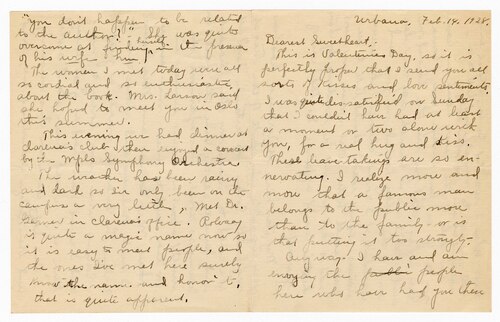 Urbana, Feb. 14, 1928.
Dearest Sweetheart,
This is Valentines Day, so it is
perfectly proper that I send you all
sorts of kisses and love sentiments.
I was quite dissatisfied on Sunday
that I couldn't have had at least
a moment or two alone with
you, for a real hug and kiss.
These leave-takings are so en-
ervating. I realize more and
more that a famous man
belongs to the public more
than to the family - or is
that putting it too strongly.
Anyway I have and am
enjoying the people
here who have had you there
"you don't happen to be related
to the author?" She was quite
overcome at finding herself in the presence
of his wife - hm!
The women I met today were all
so cordial and so enthusiastic
about the book. Mrs. Larson said
she hoped to meet you in Oslo
this summer.
This evening we had dinner at
Clarence's club then enjoyed a concert
by the Mpls Symphony Orchestra
The weather has been rainy
and dark so I've only been on the
campus a very little. Met Dr.
in Clarence's office. Rolvaag
is quite a magic name now so
it is easy to meet people, and
the ones I've met here surely
know the name and honor it,
that is quite apparent.